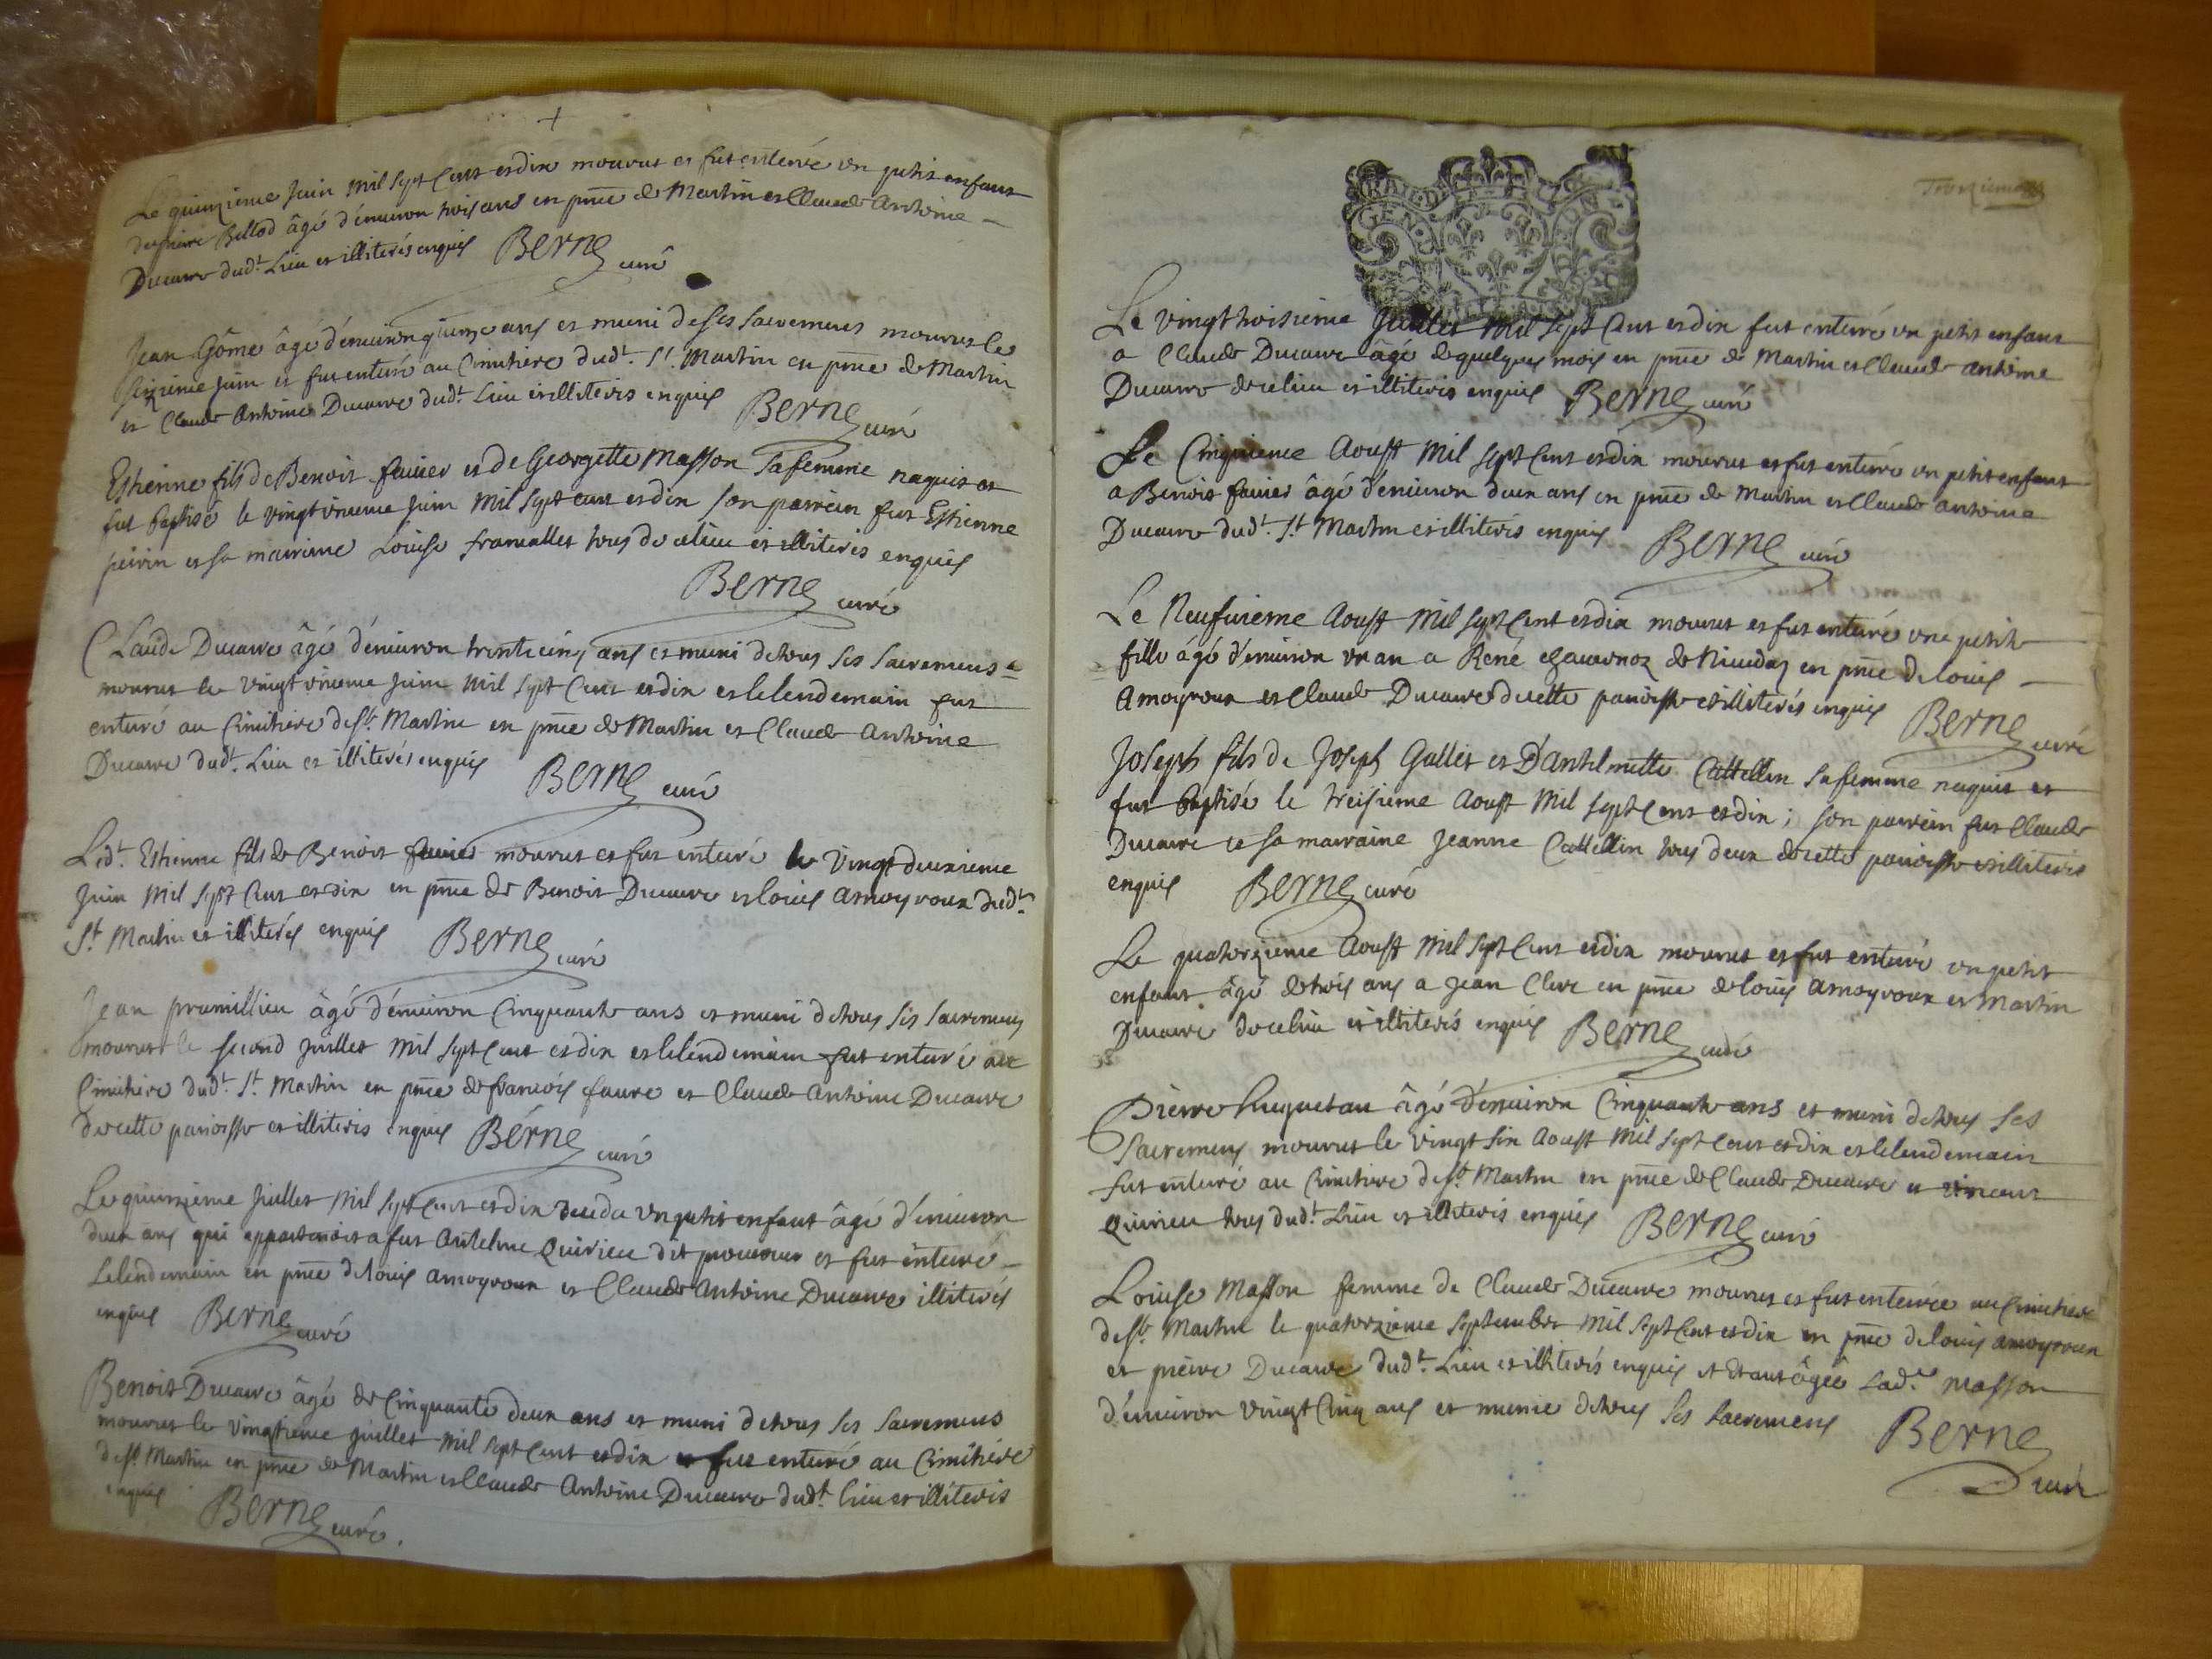 Le quinzieme Juin mil sept cent et dix mourut et fut enterré un petit enfant
de pierre Bellod âgé d'environ trois ans en pnce de Martin et Claude Antoine
Ducarre dud.t Lieu et illiterés enquis Berne curé
Jean Gôme âgé d'environ quinze ans et muni de ses sacremens mourut le
seizieme Juin et fut enterré au Cimitiere dud.t St. Martin en pnce de Martin
et Claude Antoine Ducarre dud.t Lieu et illiterés enquis Berne curé
Esthienne fils de Benoit favier et de Georgette Masson sa femme naquit et
fut baptisé le vingt unieme Juin mil sept cent et dix son parrein fut Esthienne
peirin et sa marrine Louise francallet tous de ce lieu et illiterés enquis
Berne curé
Claude Ducarre âgé d'environ trente cinq ans et muni de tous ses sacremens
mourut le vingt unieme Juin mil sept cent et dix et le lendemain fut
enterré au Cimitiere de St. Martin en pnce de Martin et Claude Antoine
Ducarre dud.t Lieu et illiterés enquis Berne curé
Led.t Esthienne fils de Benoit favier mourut et fut enterré le vingt deuxieme
Juin mil sept cent et dix en pnce de Benoit Ducarre et louis amoyroux dud.t
St. Martin et illiterés enquis Berne curé
Jean prumillieu âgé d'environ Cinquante ans et muni de tous ses sacremens
mourut le second Juillet mil sept cent et dix et le lendemain fut enterré au
Cimitiere dud.t St. Martin en pnce de francois faure et Claude Antoine Ducarre
de cette paroisse et illiterés enquis Berne curé
Le quinzieme Juillet mil sept cent et dix deceda un petit enfant âgé d'environ
deux ans qui appartenoit a fut Antelme Quirieu dit et fut enterré
Le lendemain en pnce de louis amoyroux et Claude Antoine Ducarre illiterés
enquis Berne curé
Benoit Ducarre âgé de Cinquante deux ans et muni de tous ses sacremens
mourut le vingtieme Juillet mil sept cent et dix et fut enterré au Cimitiere
de St. Martin en pnce de Martin et Claude Antoine Ducarre dud.t lieu et illiterés
enquis Berne curé.
GEN
Le vingt troisieme Juillet mil sept cent et dix fut enterré un petit enfant
a Claude Ducarre âgé de quelques mois en pnce de Martin et Claude antoine
Ducarre de ce lieu et illiterés enquis Berne curé
Le Cinquieme Aoust mil sept cent et dix mourut et fut enterré un petit enfant
a Benoit favier âgé d'environ deux ans en pnce de Martin et Claude antoine
Ducarre dud.t St. Martin et illiterés enquis Berne curé
Le Neufvieme Aoust mil sept cent et dix mourut et fut enterré une petite
fille âgé d'environ un an a René en pnce de louis
Amoyroux et Claude Ducarre de cette paroisse et illiterés enquis Berne curé
Joseph fils de Joseph Gallet et D'antelmette Cattellin sa femme naquit et
fut baptisé le treisieme Aoust mil sept cent et dix; son parrein fut Claude
Ducarre et sa marraine Jeanne Cattellin tous deux de cette paroisse et illiterés
enquis Berne curé
Le quatorzieme Aoust mil sept cent et dix mourut et fut enterré un petit
enfant âgé de trois ans a Jean Clerc en pnce de louis Amoyroux et Martin
Ducarre de ce lieu et illiterés enquis Berne curé
Pierre huguetau âgé d'environ Cinquante ans et muni de tous ses
sacremens mourut le vingt six Aoust mil sept cent et dix et le lendemain
fut enterré au Cimitiere de St. Martin en pnce de Claude Ducarre et vincent
Quirieu tous dud.t Lieu et illiterés enquis Berne curé
Louise Masson femme de Claude Ducarre mourut et fut enterrée au Cimitiere
de St. Martin le quatorzieme Septembre mil sept cent et dix en pnce de louis amoyroux
et pierre Ducarre dud.t Lieu et illiterés enquis et étant âgée Lad.e Masson
d'environ vingt Cinq ans et munie de tous ses sacremens Berne
curé